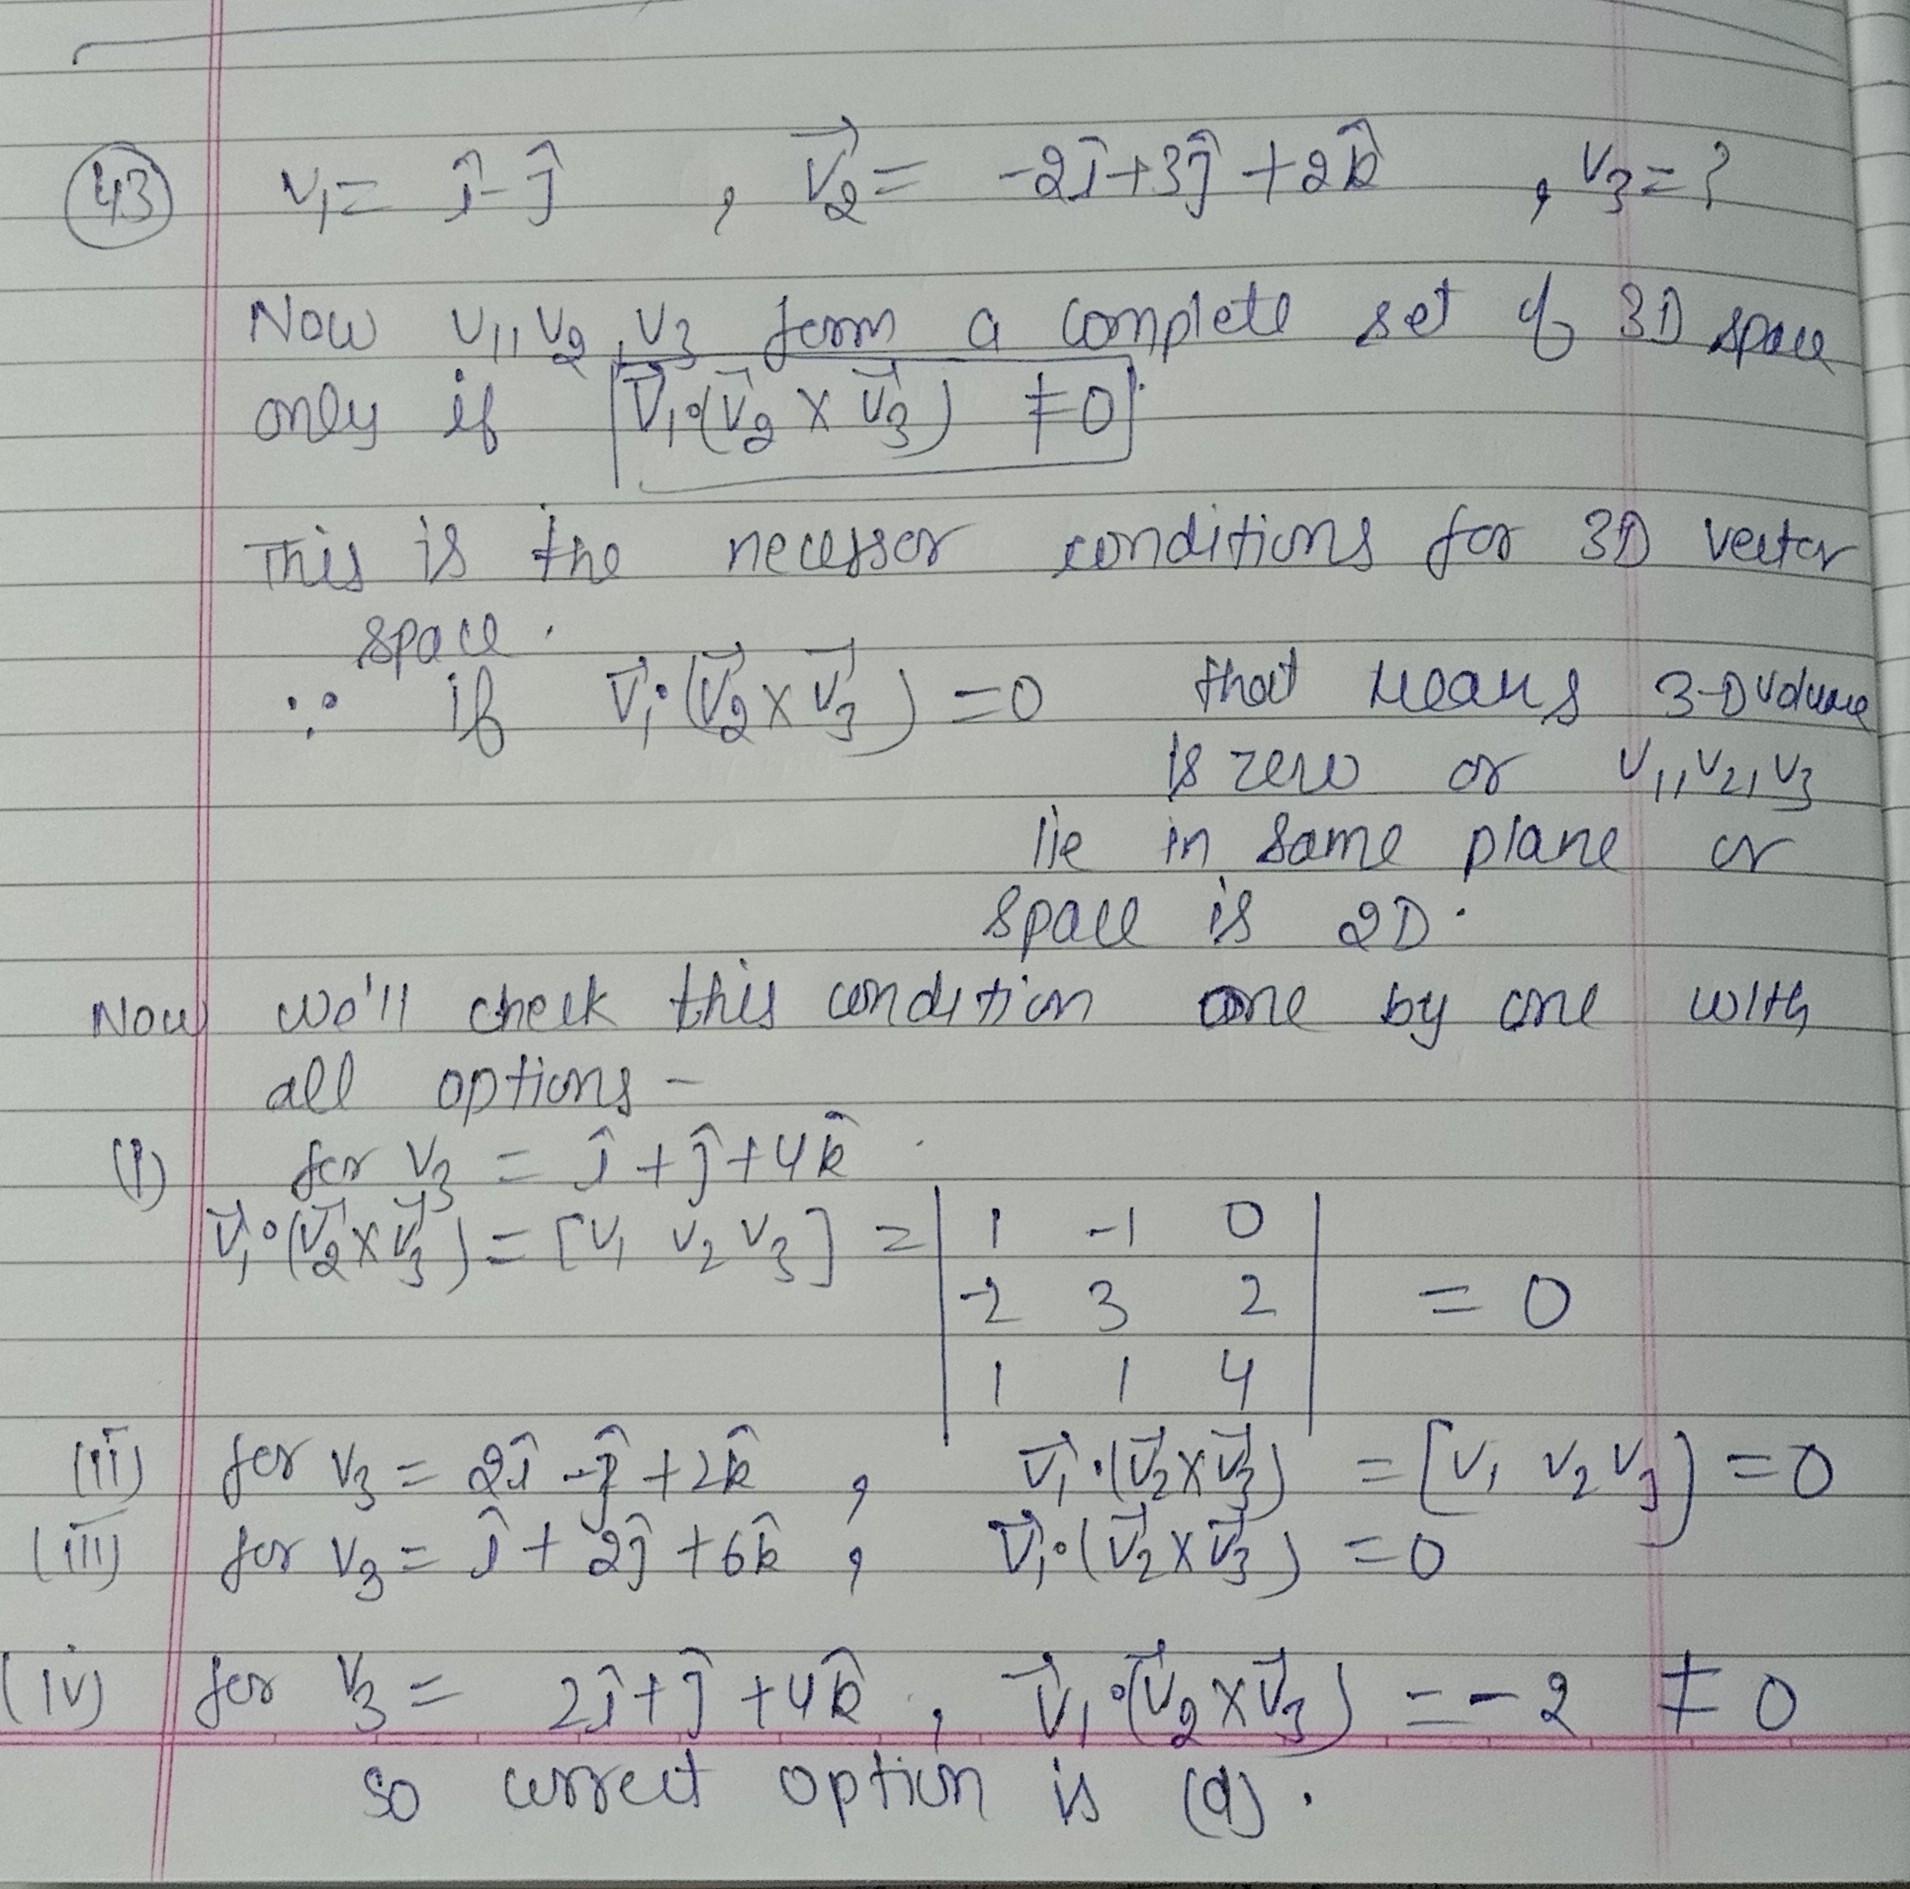 43 v₁ = î - ĵ , v⃗₂ = -2î + 3ĵ + 2k̂ , v₃ = ?
Now v₁, v₂, v₃ form a complete set of 3D space
only if v⃗₁·(v⃗₂ × v⃗₃) ≠ 0
This is the necessor conditions for 3D vector
space.
∵ if v⃗₁·(v⃗₂ × v⃗₃) = 0 that means 3-D volume
is zero or v₁, v₂, v₃
lie in same plane or
space is 2D.
Now we'll check this condition one by one with
all options -
(i) for v₃ = î + ĵ + 4k̂
v⃗₁·(v⃗₂ × v⃗₃) = [v₁ v₂ v₃] = | 1 -1 0 |
| -2 3 2 | = 0
| 1 1 4 |
(ii) for v₃ = 2î - ĵ + 2k̂ , v⃗₁·(v⃗₂ × v⃗₃) = [v₁ v₂ v₃] = 0
(iii) for v₃ = î + 2ĵ + 6k̂ , v⃗₁·(v⃗₂ × v⃗₃) = 0
(iv) for v₃ = 2î + ĵ + 4k̂ , v⃗₁·(v⃗₂ × v⃗₃) = -2 ≠ 0
so correct option is (d).